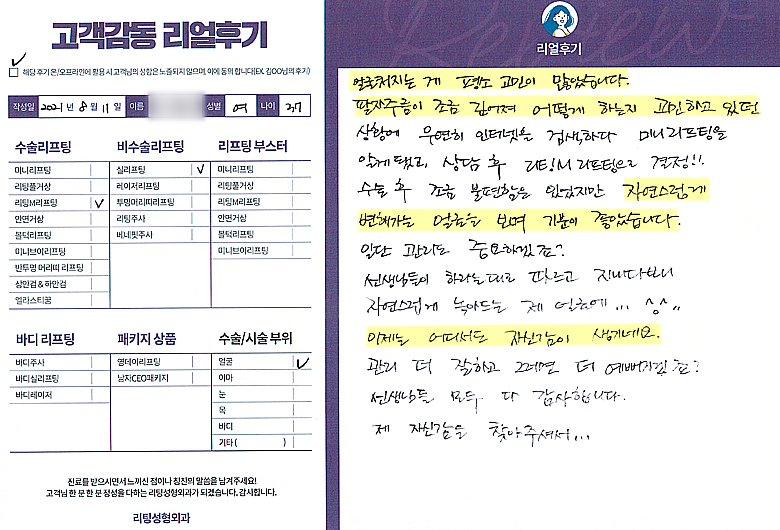 고객감동 리얼후기
해당 후기 온/오프라인에 활용 시 고객님의 성함은 노출되지 않으며, 이에 동의 합니다(EX. 김OO님의 후기)
작성일 2021년 8월 11일 이름 성별 여 나이 37
수술리프팅
미니리프팅
리팅풀거상
리팅M리프팅 ✓
안면거상
볼턱리프팅
미니브이리프팅
반투명 머리띠 리프팅
상안검 & 하안검
엘라스티꿈
비수술리프팅
실리프팅 ✓
레이저리프팅
투명머리띠리프팅
리팅주사
베네핏주사
리프팅 부스터
미니리프팅
리팅풀거상
리팅M리프팅
안면거상
볼턱리프팅
미니브이리프팅
바디 리프팅
바디주사
바디실리프팅
바디레이저
패키지 상품
영데이리프팅
남자CEO패키지
수술/시술 부위
얼굴 ✓
이마
눈
목
바디
기타( )
진료를 받으시면서 느끼신 점이나 칭찬의 말씀을 남겨주세요!
고객님 한 분 한 분 정성을 다하는 리팅성형외과가 되겠습니다. 감사합니다.
리팅성형외과
리얼후기
얼굴처지는 게 평소 고민이 많았습니다.
팔자주름이 조금 깊어져 어떻게 하는지 고민하고 있던
상황에 우연히 인터넷을 검색하다 미니리프팅을
알게 됐고, 상담 후 리팅M리프팅으로 결정!!
수술 후 조금 불편함은 있었지만 자연스럽게
변해가는 얼굴을 보며 기분이 좋았습니다.
일단 관리도 중요하겠죠?
선생님들이 하라는대로 따르고 지내다보니
자연스럽게 녹아드는 제 얼굴에... ^^..
이제는 어디서든 자신감이 생기네요.
관리 더 잘하고 그러면 더 예뻐지겠죠?
선생님들 모두 다 감사합니다.
제 자신감을 찾아주셔서...